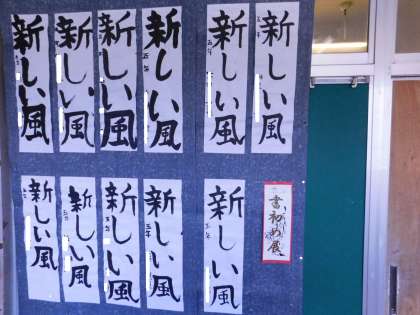 新しい風
新しい風
新しい風
新しい風
五年
新しい風
五年
新しい風
五年
新しい風
新しい風
新しい風
五年
新しい風
五年
新しい風
五年
書初め展